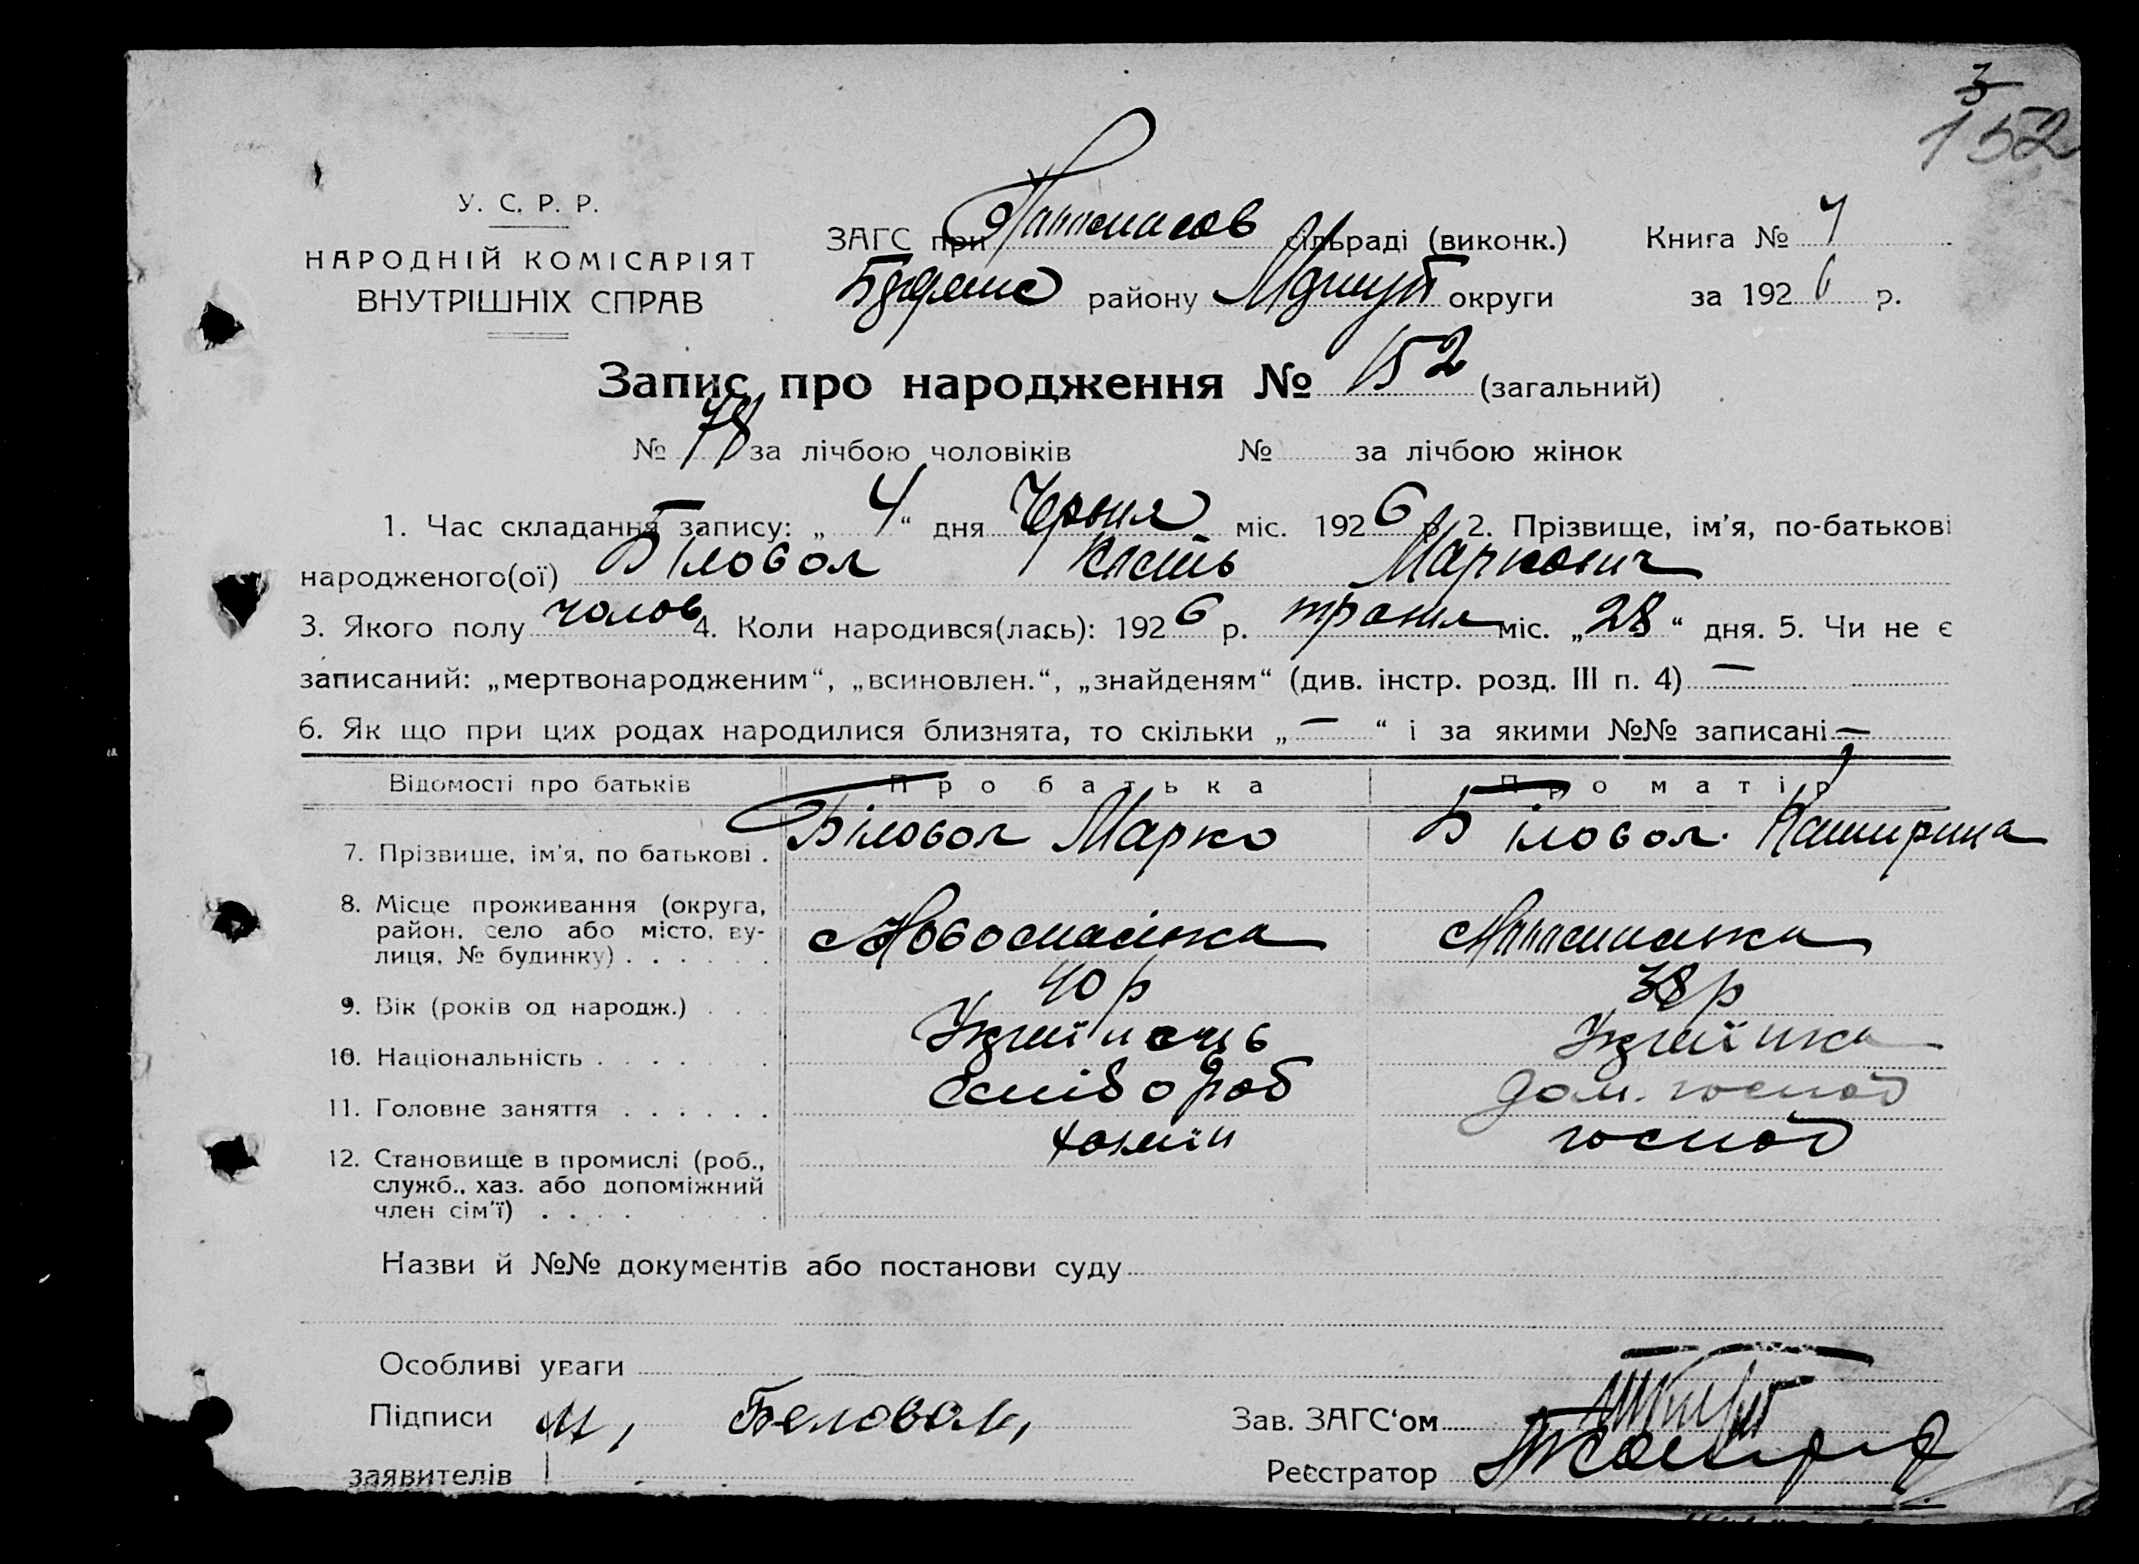 3
152
У. С. Р. Р.
НАРОДНІЙ КОМІСАРІЯТ
ВНУТРІШНІХ СПРАВ
ЗАГС при сільраді (виконк.)
району округи
Книга № 4
за 1926 р.
Запис про народження № 152 (загальний)
№ 78 за лічбою чоловіків № за лічбою жінок
1. Час складання запису: „ 4 “ дня Червня міс. 1926 р. 2. Прізвище, ім’я, по-батькові
народженого(ої) Біловол Кость Маркович
3. Якого полу чолов 4. Коли народився(лась): 1926 р. травня міс. „ 28 “ дня. 5. Чи не є
записаний: „мертвонародженим“, „всиновлен.“, „знайденям“ (див. інстр. розд. III п. 4) —
6. Як що при цих родах народилися близнята, то скільки „ — “ і за якими №№ записані —
Відомості про батьків Про батька Про матір
7. Прізвище, ім’я, по батькові . Біловол Марко Біловол
8. Місце проживання (округа,
район, село або місто, ву-
лиця, № будинку) . . . . . . Новоспасівка
9. Вік (років од народж.) . . . 40 р 38 р
10. Національність . . . . . . . Українець Українка
11. Головне заняття . . . . . . хлібороб дом. господ
12. Становище в промислі (роб.,
служб., хаз. або допоміжний
член сім’ї) . . . . хазяїн господ
Назви й №№ документів або постанови суду
Особливі уваги
Підписи М, Беловол,
заявителів
Зав. ЗАГС‘ом
Реєстратор